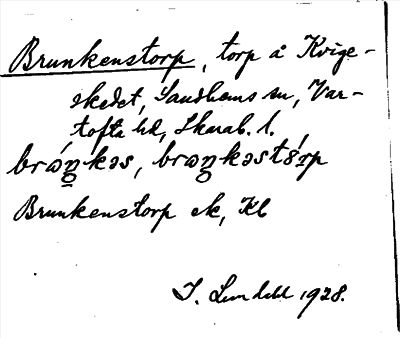 Brunkenstorp, torp å Kvige-
skedet, Sandhems sn, Var-
tofta hd, Skarab. l.
brώŋ̲kəs, brωŋkəstǿrp
Brunkenstorp ek, Kb
I. Lundahl 1928.